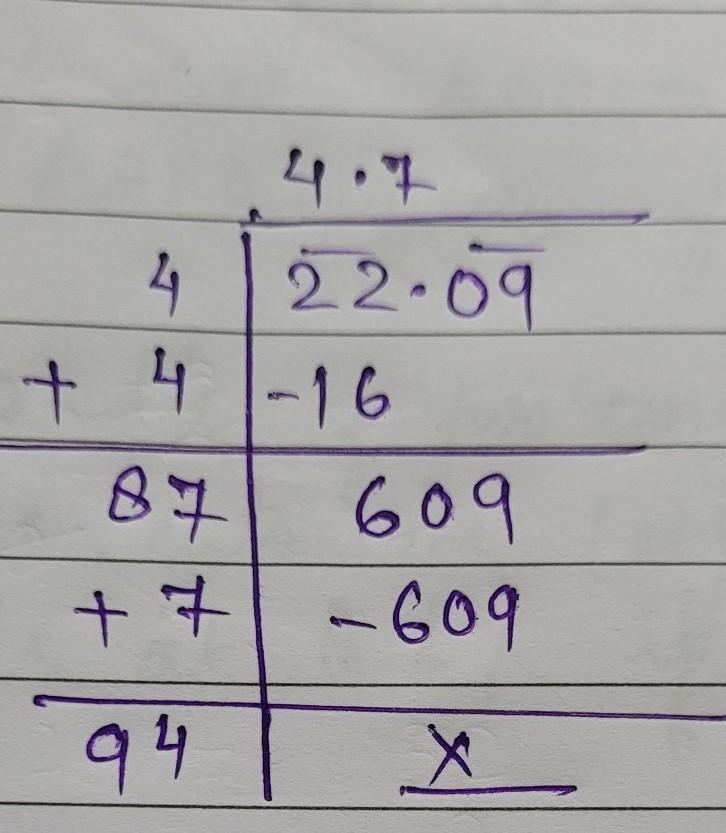 4.7
4 22.09
+ 4 -16
87 609
+ 7 -609
94 x